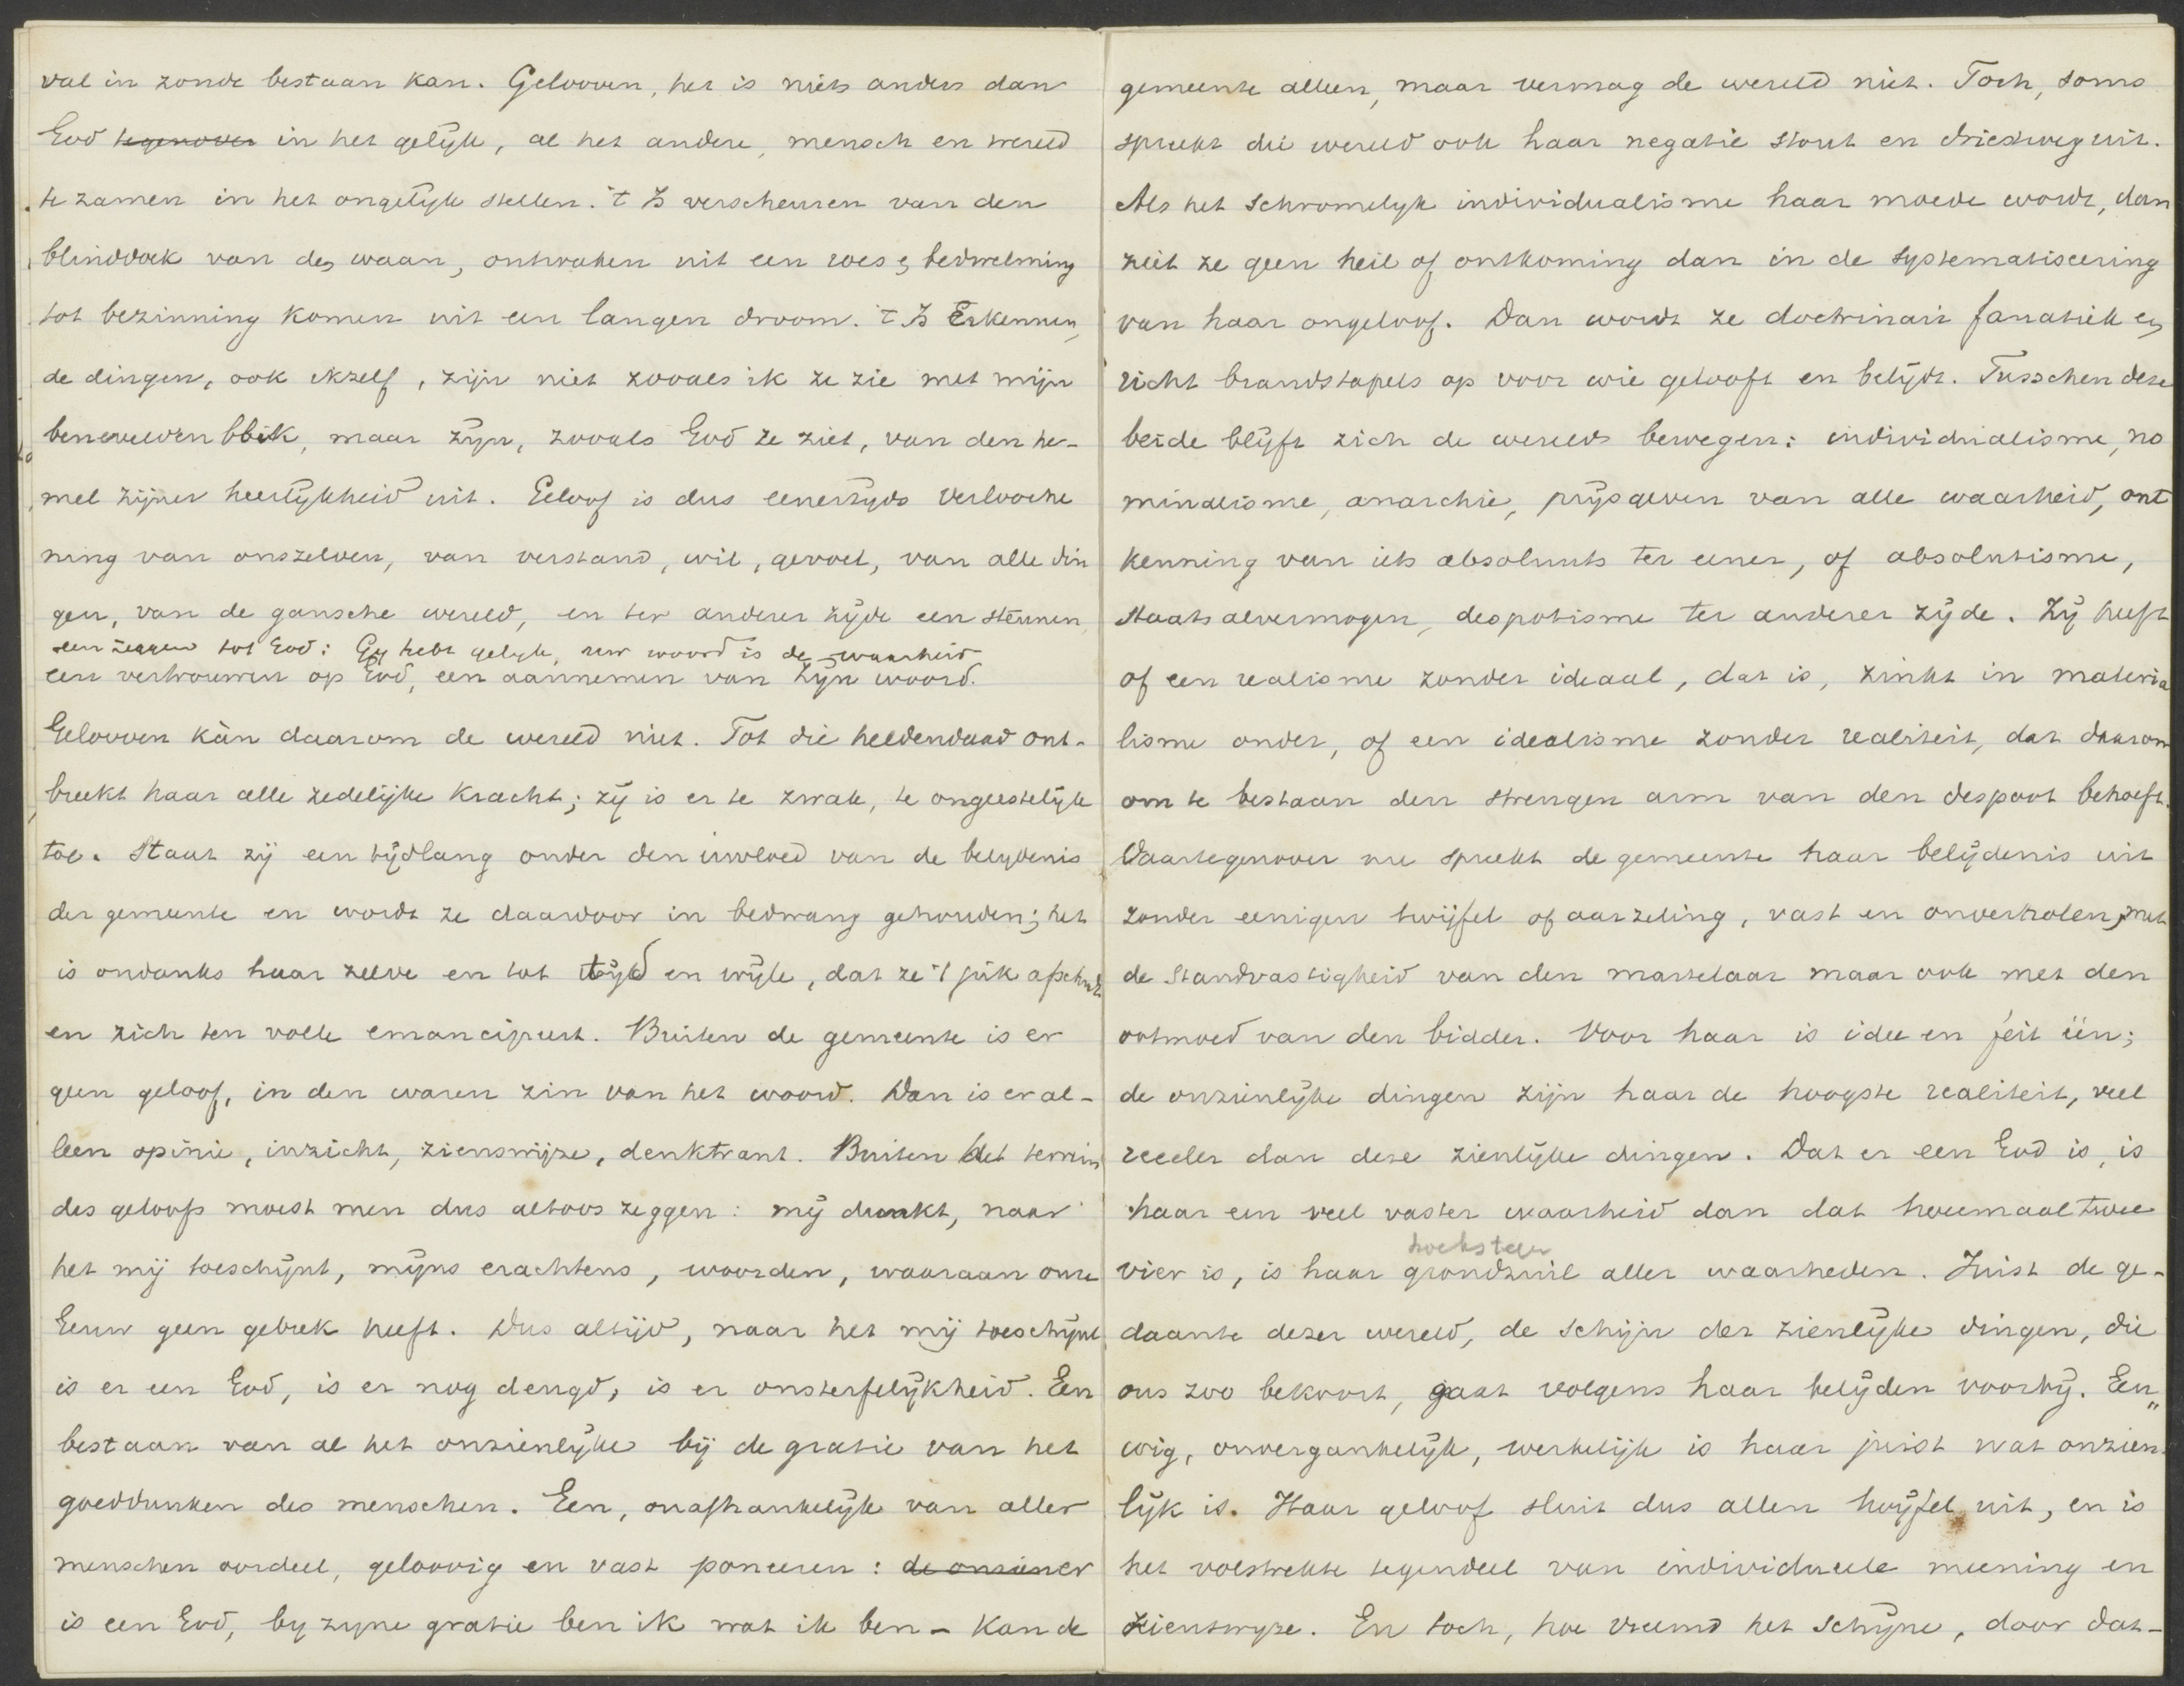 val in zonde bestaan kan. Gelooven, het is niets anders dan
God tegenover in het gelijk, al het andere, mensch en wereld
te zamen in het ongelijk stellen. 't Is verscheuren van den
blinddoek van den waan, ontwaken uit een roes en bedwelming
tot bezinning komen uit een langen droom. 't Is Erkennen,
de dingen, ook ikzelf, zijn niet zooals ik ze zie met mijn
benevelden blik, maar zijn, zooals God ze ziet, van den he-
mel zijner heerlijkheid uit. Geloof is dus eenerzijds verlooche
ning van onszelven, van verstand, wil, gevoel, van alle din
gen, van de gansche wereld, en ter anderer zijde een steunen,
een zeggen tot God: Gij hebt gelijk, uw woord is de waarheid
een vertrouwen op God, een aannemen van Zijn woord.
Gelooven kàn daarom de wereld niet. Tot die heldendaad ont-
breekt haar alle zedelijke kracht; zij is er te zwak, te ongeestelijk
toe. Staat zij een tijdlang onder den invloed van de belijdenis
der gemeente en wordt ze daardoor in bedwang gehouden; het
is ondanks haar zelve en tot tijd en wijle, dat ze 't juk afschudt
en zich ten volle emancipeert. Buiten de gemeente is er
geen geloof, in den waren zin van het woord. Dan is er al-
leen opinie, inzicht, zienswijze, denktrant. Buiten het terrein
des geloofs moest men dus altoos zeggen: mij dunkt, naar
het mij toeschijnt, mijns erachtens, woorden, waaraan onze
Eeuw geen gebrek heeft. Dus altijd, naar het mij toeschijnt
is er een God, is er nog deugd, is er onsterfelijkheid. Een
bestaan van al het onzienlijke bij de gratie van het
goeddunken des menschen. Een, onafhankelijk van aller
menschen oordeel, geloovig en vast poneeren: de onziener
is een God, by zyne gratie ben ik wat ik ben - kan de
gemeente alleen, maar vermag de wereld niet. Toch, soms
spreekt die wereld ook haar negatie stout en driestweg uit.
Als het schromelijk individualisme haar moede wordt, dan
ziet ze geen heil of ontkoming dan in de systematiseering
van haar ongeloof. Dan wordt ze doctrinair fanatiek en
richt brandstapels op voor wie gelooft en belijdt. Tusschen deze
beide blijft zich de wereld bewegen: individualisme, no
minalisme, anarchie, prijsgeven van alle waarheid, ont
kenning van iets absoluuts ter eener, of absolutisme,
staatsalvermogen, despotisme ter anderer zijde. Zij heeft
of een realisme zonder ideaal, dat is, zinkt in materia
lisme onder, of een idealisme zonder realiteit, dat daarom
om te bestaan den strengen arm van den despoot behoeft.
Daartegenover nu spreekt de gemeente haar belijdenis uit
zonder eenigen twijfel of aarzeling, vast en onverholen, met
de standvastigheid van den martelaar maar ook met den
ootmoed van den bidder. Voor haar is idee en feit één;
de onzienlijke dingen zijn haar de hoogste realiteit, veel
reeeler dan deze zienlijke dingen. Dat er een God is, is
haar een veel vaster waarheid dan dat tweemaal twee
hoeksteen
vier is, is haar grondzuil aller waarheden. Juist de ge-
daante dezer wereld, de schijn der zienlijke dingen, die
ons zoo bekoort, gaat volgens haar belijden voorbij. Eeu„
wig, onvergankelijk, werkelijk is haar juist wat onzien-
lijk is. Haar geloof sluit dus allen twijfel uit, en is
het volstrekte tegendeel van individueele meening en
zienswijze. En toch, hoe vreemd het schijne, door dat-